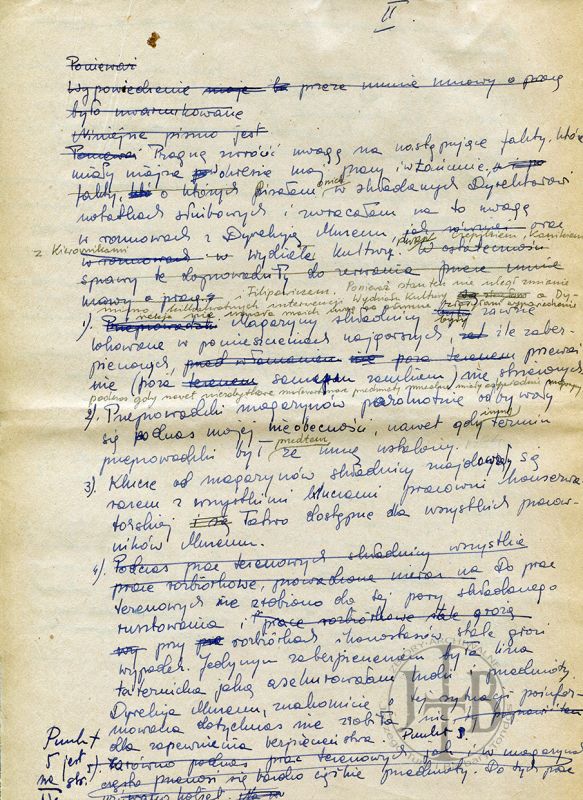 II
Ponieważ
Wypowiedzenie moje to przeze mnie umowy o pracę
było uwarunkowane
Niniejsze pismo jest
Ponieważ Pragnę zwrócić uwagę na następujące fakty, które
miały miejsce w okresie mej pracy i w Łańcucie.
fakty, o których pisałam w składanych Dyrektorowi
notatkach służbowych i zwracałam na to uwagę
w rozmowach z Dyrekcją Muzeum, jak również oraz
z Kierownikami
w rozmowach i w Wydziale Kultury. W ostateczności
sprawy te doprowadziły do zerwania przez mnie
umowy o pracę.
Filipowiczem. Ponieważ stan ten nie uległ zmianie
mimo interwencji Wydziału Kultury a Dy-
rekcja nie moich uwag
1). Przeprowadzki Magazyny składnicy były zawsze
lokowane w pomieszczeniach najgorszych, źle zaber-
pieczonych, przed włamaniem poza terenem przeważ-
nie (poza terenem samym zamkiem) nie strzeżonych
podczas gdy nawet przedmioty miały odpowiednie magazyny
2). Przeprowadzki magazynów parokrotnie odbywały
się podczas mojej nieobecności, nawet gdy termin inny
przeprowadzki był przedtem ze mną ustalony.
3). Klucze od magazynów składnicy znajdowały się
razem z wszystkimi kluczami pracowni konserwa-
torskiej i są łatwo dostępne dla wszystkich pracow-
ników Muzeum.
4). Podczas prac terenowych składnicy wszystkie
prace rozbiórkowe, prowadzone nieraz na Do prac
terenowych nie zrobiono do tej pory składanego
rusztowania i prace rozbiórkowe stale grożą
przy rozbiórkach ikonostasów stale grozi
wypadek. Jedynym zabezpieczeniem była lina
taternicka jaką asekurowałam ludzi i przedmioty
Dyrekcja Muzeum, znakomicie o sytuacji poinfor-
mowana dotychczas nie zrobiła nic
dla zapewnienia bezpieczeństwa. Punkt 8.
Punkt
5 jest
na str.
5). zarówno podczas prac terenowych jak i w magazynach
często przenosi się bardzo ciężkie przedmioty. Do tych prac